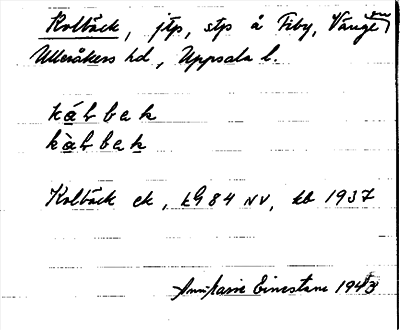 Kolbäck, jtp, stp å Fiby, Vänge sn
Ulleråkers hd, Uppsala l.
kálbak
kàlbak
Kolbäck ek, LG 84 NV, kb 1937
Einestam 1943